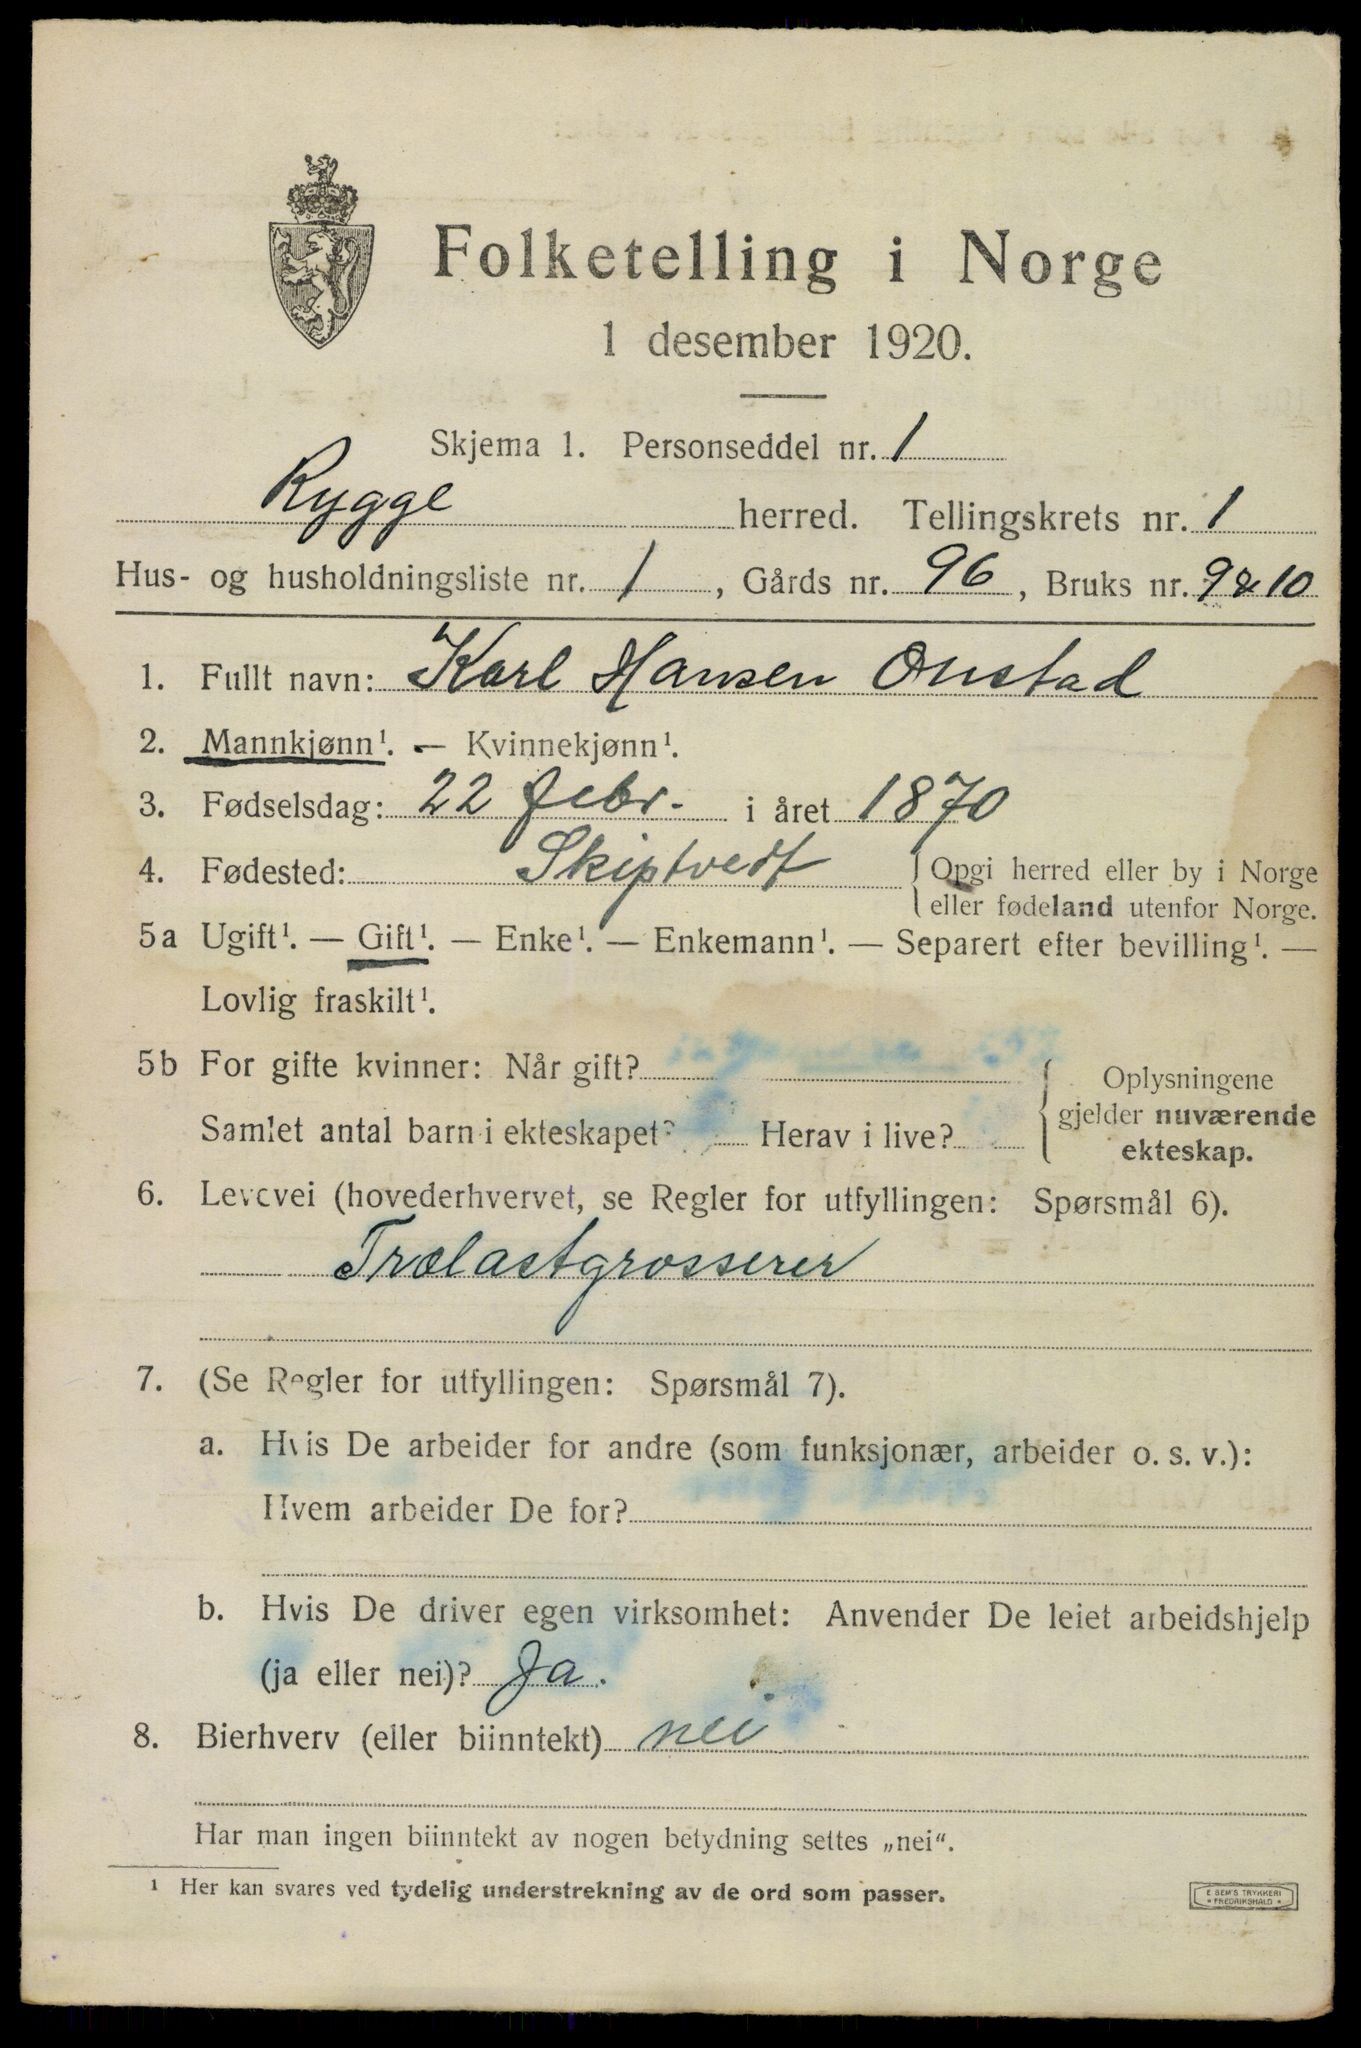 Folketelling i Norge
1 desember 1920.
Skjema 1. Personseddel nr. 1
Rygge herred. Tellingskrets nr. 1
Hus- og husholdningsliste nr. 1, Gårds nr. 96, Bruks nr. 9 & 10
1. Fullt navn: Karl Hansen Onstad
2. Mannkjønn¹. — Kvinnekjønn¹.
3. Fødselsdag: 22 febr. i året 1870
4. Fødested: Skiptvedt { Opgi herred eller by i Norge
eller fødeland utenfor Norge.
5a Ugift¹. — Gift¹. — Enke¹. — Enkemann¹. — Separert efter bevilling¹. —
Lovlig fraskilt¹.
5b For gifte kvinner: Når gift?
Samlet antal barn i ekteskapet? Herav i live?
Oplysningene
gjelder nuværende
ekteskap.
6. Levevei (hovederhvervet, se Regler for utfyllingen: Spørsmål 6).
Trælastgrosserer
7. (Se Regler for utfyllingen: Spørsmål 7).
a. Hvis De arbeider for andre (som funksjonær, arbeider o. s. v.):
Hvem arbeider De for?
b. Hvis De driver egen virksomhet: Anvender De leiet arbeidshjelp
(ja eller nei)? Ja.
8. Bierhverv (eller biinntekt) nei
Har man ingen biinntekt av nogen betydning settes „nei“.
¹ Her kan svares ved tydelig understrekning av de ord som passer.
E SEM'S TRYKKERI
• FREDRIKSHALD •